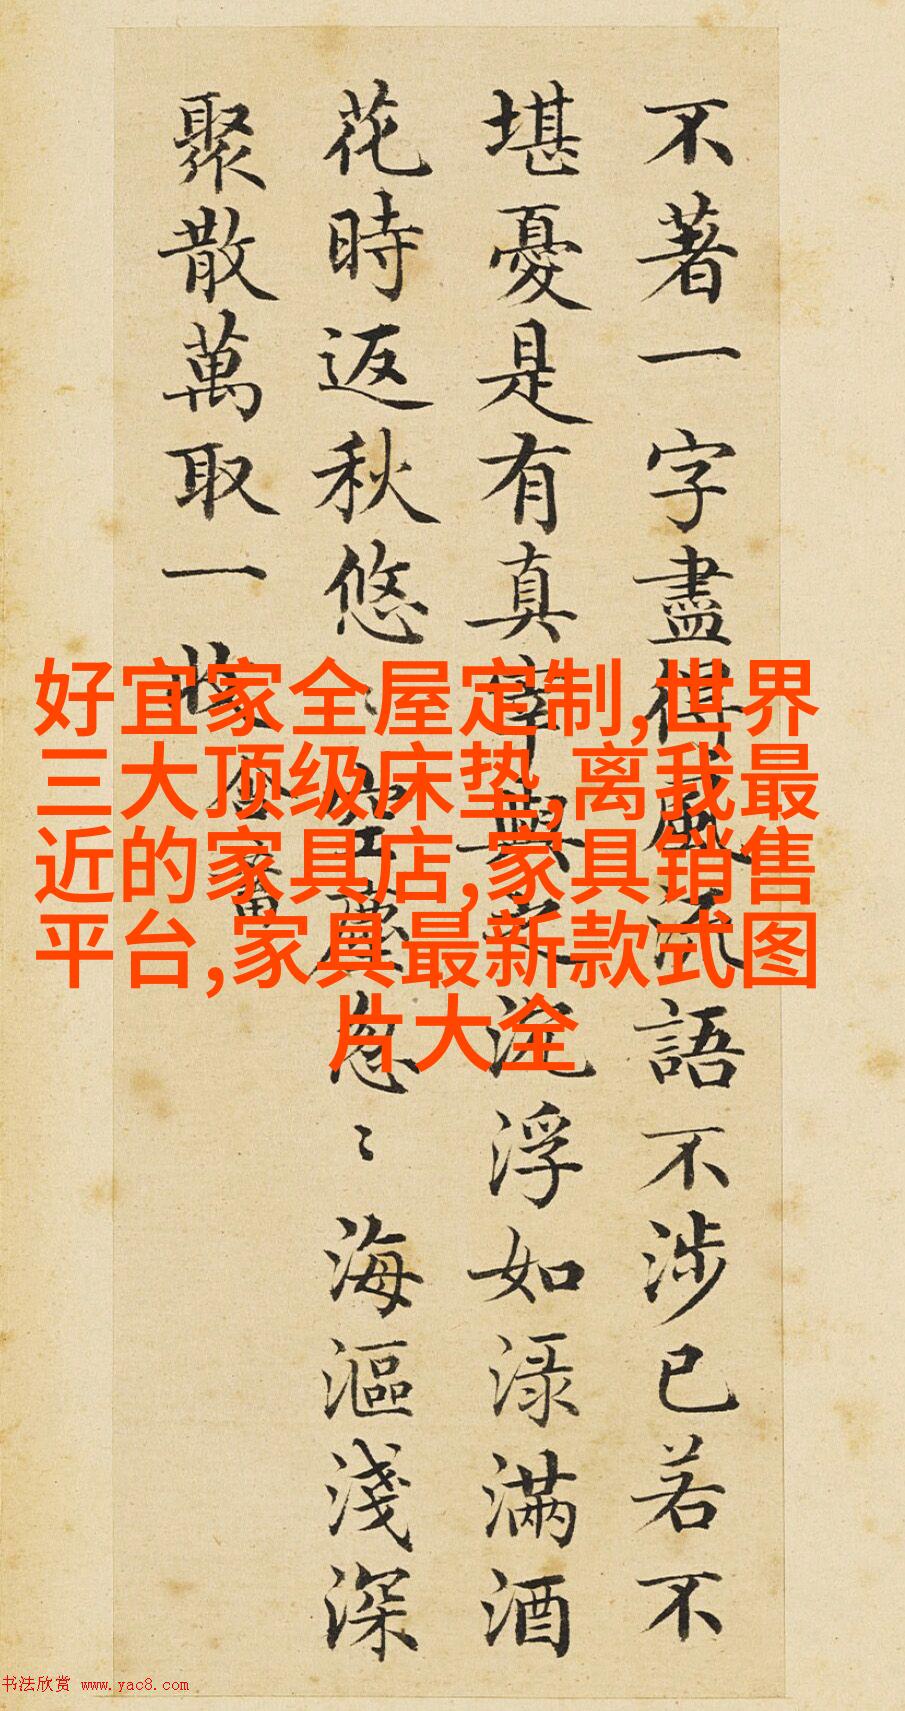 不著一字盡得風流語不涉已若不
堪憂是有真宰與之沈浮如渌滿酒
花時返秋悠〻空塵忽〻海漚淺深
聚散萬取一收
含蓄
好宜家全屋定制,世界
三大顶级床垫,离我最
近的家具店,家具销售
平台,家具最新款式图
片大全
书法欣赏 www.yac8.com